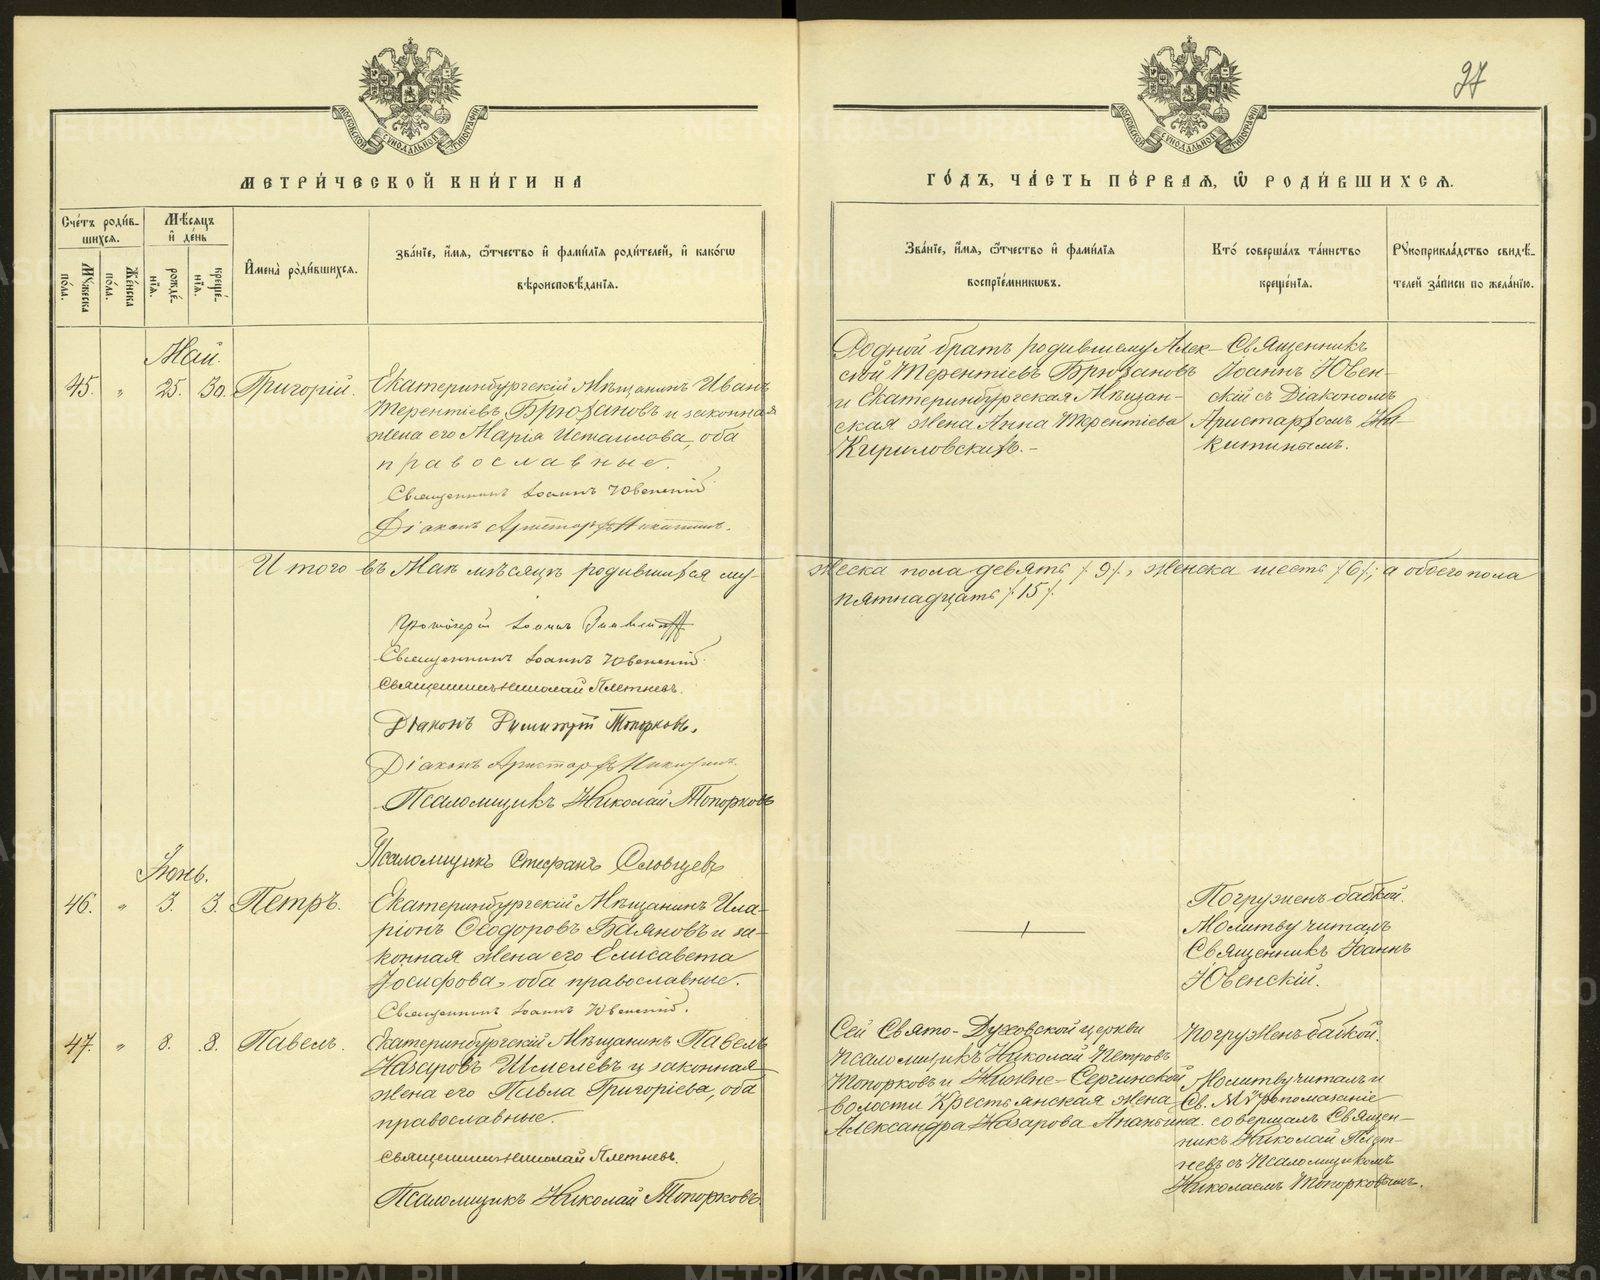 97
МОСКОВСКОЙ СѴНОДАЛЬНОЙ ТИПОГРАФІИ
МОСКОВСКОЙ СѴНОДАЛЬНОЙ ТИПОГРАФІИ
МЕТРИ́ЧЕСКОЙ КНИ́ГИ НА
ГО́ДЪ, ЧА́СТЬ ПЕ́РВАЯ, Ѡ҆ РОДИ́ВШИХСЯ.
Сче́тъ роди́в-
шихся.
Мѣ́сяцъ
и҆ де́нь
Мꙋ́жеска
по́ла.
Же́нска
по́ла.
рожде́-
нїя.
креще́-
нїя.
И҆мена̀ роди́вшихся.
Зва́нїе, и҆́мя, ѻ҆́тчество и҆ фами́лїя роди́телей, и҆ како́гѡ
вѣроисповѣ́данїя.
Зва́нїе, и҆́мя, ѻ҆́тчество и҆ фами́лїя
воспрїе́мникѡвъ.
Кто̀ соверша́лъ та́инство
креще́нїя.
Рꙋкоприкла́дство свидѣ́-
телей за́писи по жела́нїю.
Май.
45. " 25. 30. Григорій.
Екатеринбургскій Мѣщанинъ Иванъ
Терентіевъ Брюхановъ и законная
жена его Марія Исмаилова, оба
православные.
Священникъ Іоаннъ Ювенскій
Діаконъ Аристархъ Никитинъ.
Родной братъ родившему Алек-
сѣй Терентіевъ Брюхановъ
и Екатеринбургская Мѣщан-
ская жена Анна Терентіева
Кириловскихъ.-
Священникъ
Іоаннъ Ювен-
скій съ Діакономъ
Аристархомъ Ни-
китинымъ.
Итого въ Маѣ мѣсяцѣ родившихся му-
жеска пола девять /9/, женска шесть /6/, а обоего пола
пятнадцать /15/.
Протоіерей Іоаннъ
Священникъ Іоаннъ Ювенскій
Священникъ Николай Плетневъ.
Діаконъ Димитрій Топорковъ.
Діаконъ Аристархъ Никитинъ.
Псаломщикъ Николай Топорковъ
Псаломщикъ Стефанъ Словцевъ
Іюнь.
46. " 3. 3. Петръ.
Екатеринбургскій Мѣщанинъ Ила-
ріонъ Ѳеодоровъ Баяновъ и за-
конная жена его Елисавета
Іосифова, оба православные.
Священникъ Іоаннъ Ювенскій.
Погруженъ бабкой.
Молитву читалъ
Священникъ Іоаннъ
Ювенскій.
47. " 8. 8. Павелъ.
Екатеринбургскій Мѣщанинъ Павелъ
Назаровъ Шмелевъ и законная
жена его Павла Григоріева, оба
православные.
Священникъ Николай Плетневъ.
Псаломщикъ Николай Топорковъ.
Сей Свято-Духовской церкви
Псаломщикъ Николай Петровъ
Топорковъ и Нижне-Сергинской
волости Крестьянская жена
Александра Назарова Ананьина.
Погруженъ бабкой.
Молитву читалъ и
Св. Мѵропомазаніе
совершалъ Священ-
никъ Николай Плет-
невъ съ Псаломщикомъ
Николаемъ Топорковымъ.
METRIKI.GASO-URAL.RU